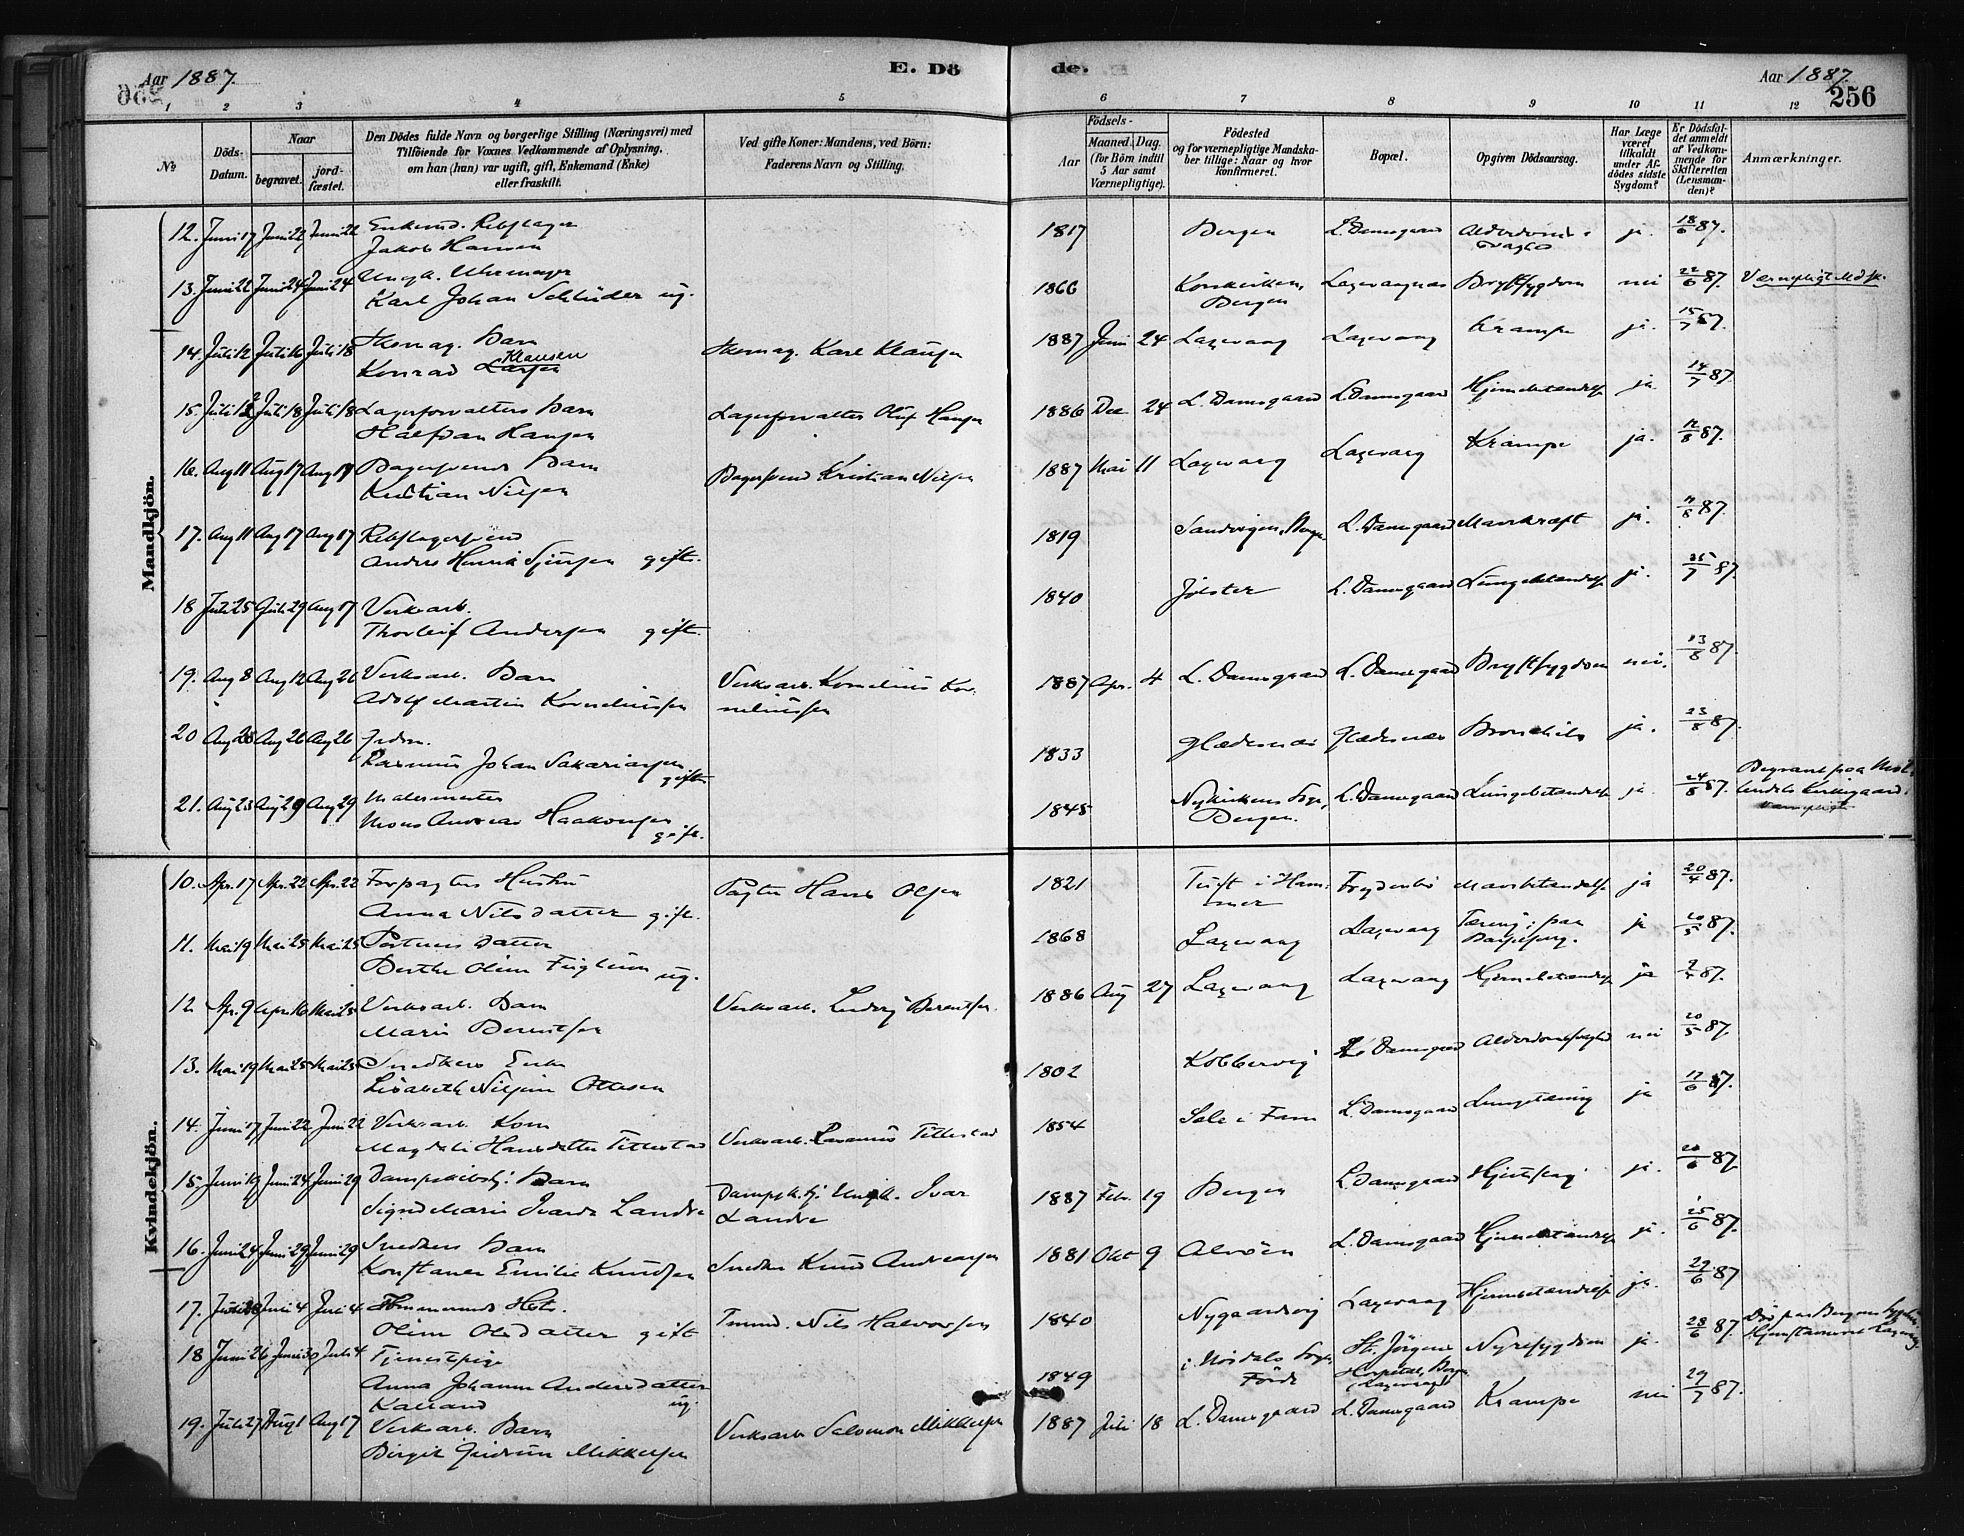 Aar 1887.
E. Dö
de.
Aar 1887.
256
1 2 3 4 5 6 7 8 9 10 11 12
№
Döds-Datum.
Naar
begravet.
jord-fæstet.
Den Dödes fulde Navn og borgerlige Stilling (Næringsvei) med
Tilföiende for Voxnes Vedkommende af Oplysning,
om han (hun) var ugift, gift, Enkemand (Enke)
eller fraskilt.
Ved gifte Koner: Mandens, ved Börn:
Faderens Navn og Stilling.
Födsels-
Aar
Maaned. Dag.
(for Börn indtil
5 Aar samt
Værnepligtige).
Födested
og for værnepligtige Mandska-
ber tillige: Naar og hvor
konfirmeret.
Bopæl.
Opgiven Dödsaarsag.
Har Læge
været
tilkaldt
under Af-
dödes sidste
Sygdom?
Er Dödsfal-
det anmeldt
af Vedkom-
mende for
Skifteretten
(Lensman-
den)?
Anmærkninger.
Mandkjön.
12. Juni 17 Juni 22 Juni 22 Enkemd. Rebslager
Jakob Hansen 1817 Bergen L. Damsgaard ja. 18/6 87.
13. Juni 22 Juni 24 Juni 24 Ungk. Uhrmager
Karl Johan Schlüder ug. 1866 Korskirken, Bergen Laxevaagnæs Brystsygdom nei 22/6 87. Værnepligt. Mdsk.
14. Juli 12 Juli 16 Juli 18 Skomag. Barn
Konrad Larsen Klausen Skomag. Karl Klausen 1887 Juni 24 Laxevaag Laxevaag Krampe ja. 15/7 87.
15. Juli 12 Juli 18 Juli 18 Lagerforvalters Barn
Halfdan Hansen Lagerforvalter Oluf Hansen 1886 Dec 24 L. Damsgaard L. Damsgaard Hjernebetændelse ja. 14/7 87.
16. Aug 11 Aug 17 Aug 17 Bagersvends Barn
Kristian Nilsen Bagersvend Kristian Nilsen 1887 Mai 11 Laxevaag Laxevaag Krampe ja. 12/8 87.
17. Aug 11 Aug 17 Aug 17 Rebslagersvend
Anders Henrik Sjursen gift. 1819 Sandvigen, Bergen L. Damsgaard Mavekræft ja. 11/8 87.
18 Juli 25 Juli 29 Aug 17 Verksarb.
Thorleif Andersen gift. 1840 Jölster L. Damsgaard Lungebetændelse ja. 25/7 87.
19. Aug 8 Aug 12 Aug 26 Verksarb. Barn
Adolf Martin Korneliussen Verksarb. Kornelius Kor-
neliussen 1887 Apr. 4 L. Damsgaard L. Damsgaard Brystsygdom nei. 13/8 87.
20 Aug 26 Aug 26
Rasmus Johan Sakariassen gift. 1833 Glædesnæs Glædesnæs Bronchitis ja. 23/8 87.
21. Aug 23 Aug 29 Aug 29 Malermester
Mons Andreas Haakonsen gift. 1845 Nykirkens Sogn, Bergen. L. Damsgaard Lungebetændelse ja. 24/8 87. Begravet paa
Kirkegaard.
Kvindekjön.
10. Apr. 17 Apr. 22 Apr. 22 Forpagters Hustru
Anna Nilsdatter gift. Pagter Hans Olsen 1821 Tuft i Ham-
mer Frydenbö Mavebetændelse ja 20/4 87.
11. Mai 19 Mai 25 Mai 25 Portners datter
Berthe Oline Fuglum ug. 1868 Laxevaag Laxevaag Tæring ja 20/5 87.
12 Apr. 9 Apr. 16 Mai 25 Verksarb. Barn
Marie Berentsen Verksarb. Ludvig Berentsen. 1886 Aug 27 Laxevaag Laxevaag Hjernebetændelse ja 87.
13. Mai 19 Mai 25 Mai 25 Snedkers Enke
Lisabeth Nilsine Ottesen 1802 Kobbervig L. Damsgaard Alderdomssvaghed nei 20/5 87.
14. Juni 17 Juni 22 Juni 22 Verksarb. Kone
Magdeli Hansdatter Tittestad Verksarb. Rasmus Tittestad 1854 Sele i Fane L. Damsgaard Lungetæring ja 17/6 87.
15. Juni 19 Juni 24 Juni 29 Dampskibskj. Barn
Signe Marie Ivarda Landre Dampsk.kj. Ungk. Ivar
Landre 1887 Febr. 19 Bergen L. Damsgaard ja. 20/6 87.
16. Juni 24 Juni 29 Juni 29 Snedkers Barn
Konstance Emilie Knudsen Snedker Knud Andreassen 1881 Okt 9 Alvöen L. Damsgaard Hjernebetændelse ja. 25/6 87.
17. Juli 4 Tömmermands Hstr.
Oline Olsdatter gift Tmmd. Nils Halvorsen 1840 Nygaardsvig Laxevaag Hjernebetændelse ja. 29/6 87
18 Juni 26 Juni 30 Juli 4 Tjenestpige
Anna Johanne Andersdatter
Kalland ug. 1849 Förde St. Jörgens
Hospital, Bergen
(Laxevaag) Nyresygdom ja. 28/6 87. Död paa Bergens Sygehus
19. Juli 27 Aug 1 Aug 17 Verksarb. Barn
Birgit Gudrun Mikkelsen Verksarb. Salomon Mikkelsen 1887 Juli 18 L. Damsgaard L. Damsgaard Krampe nei 29/7 87.